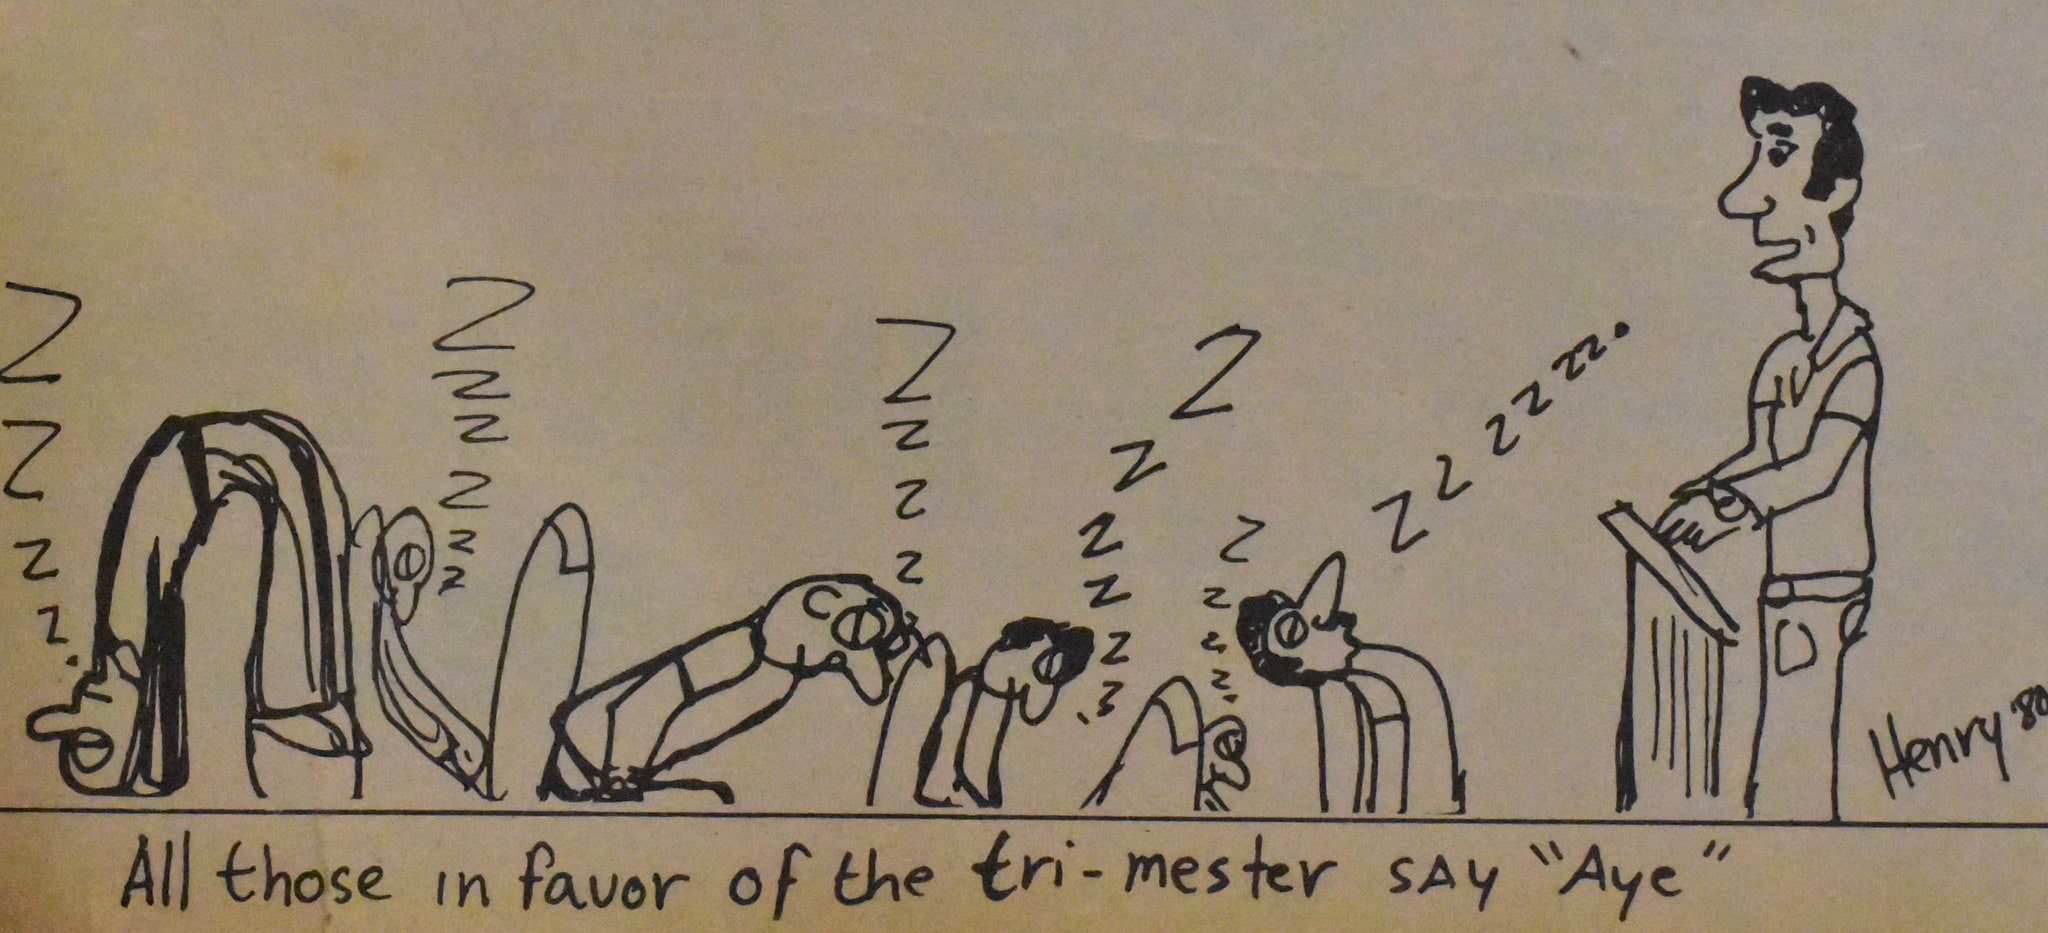 Z Z Z Z
Z Z Z Z Z Z
Z Z Z Z
Z Z Z Z Z Z
Z Z Z Z
Z Z Z Z Z Z
Henry '80
All those in favor of the tri-mester SAY "Aye"